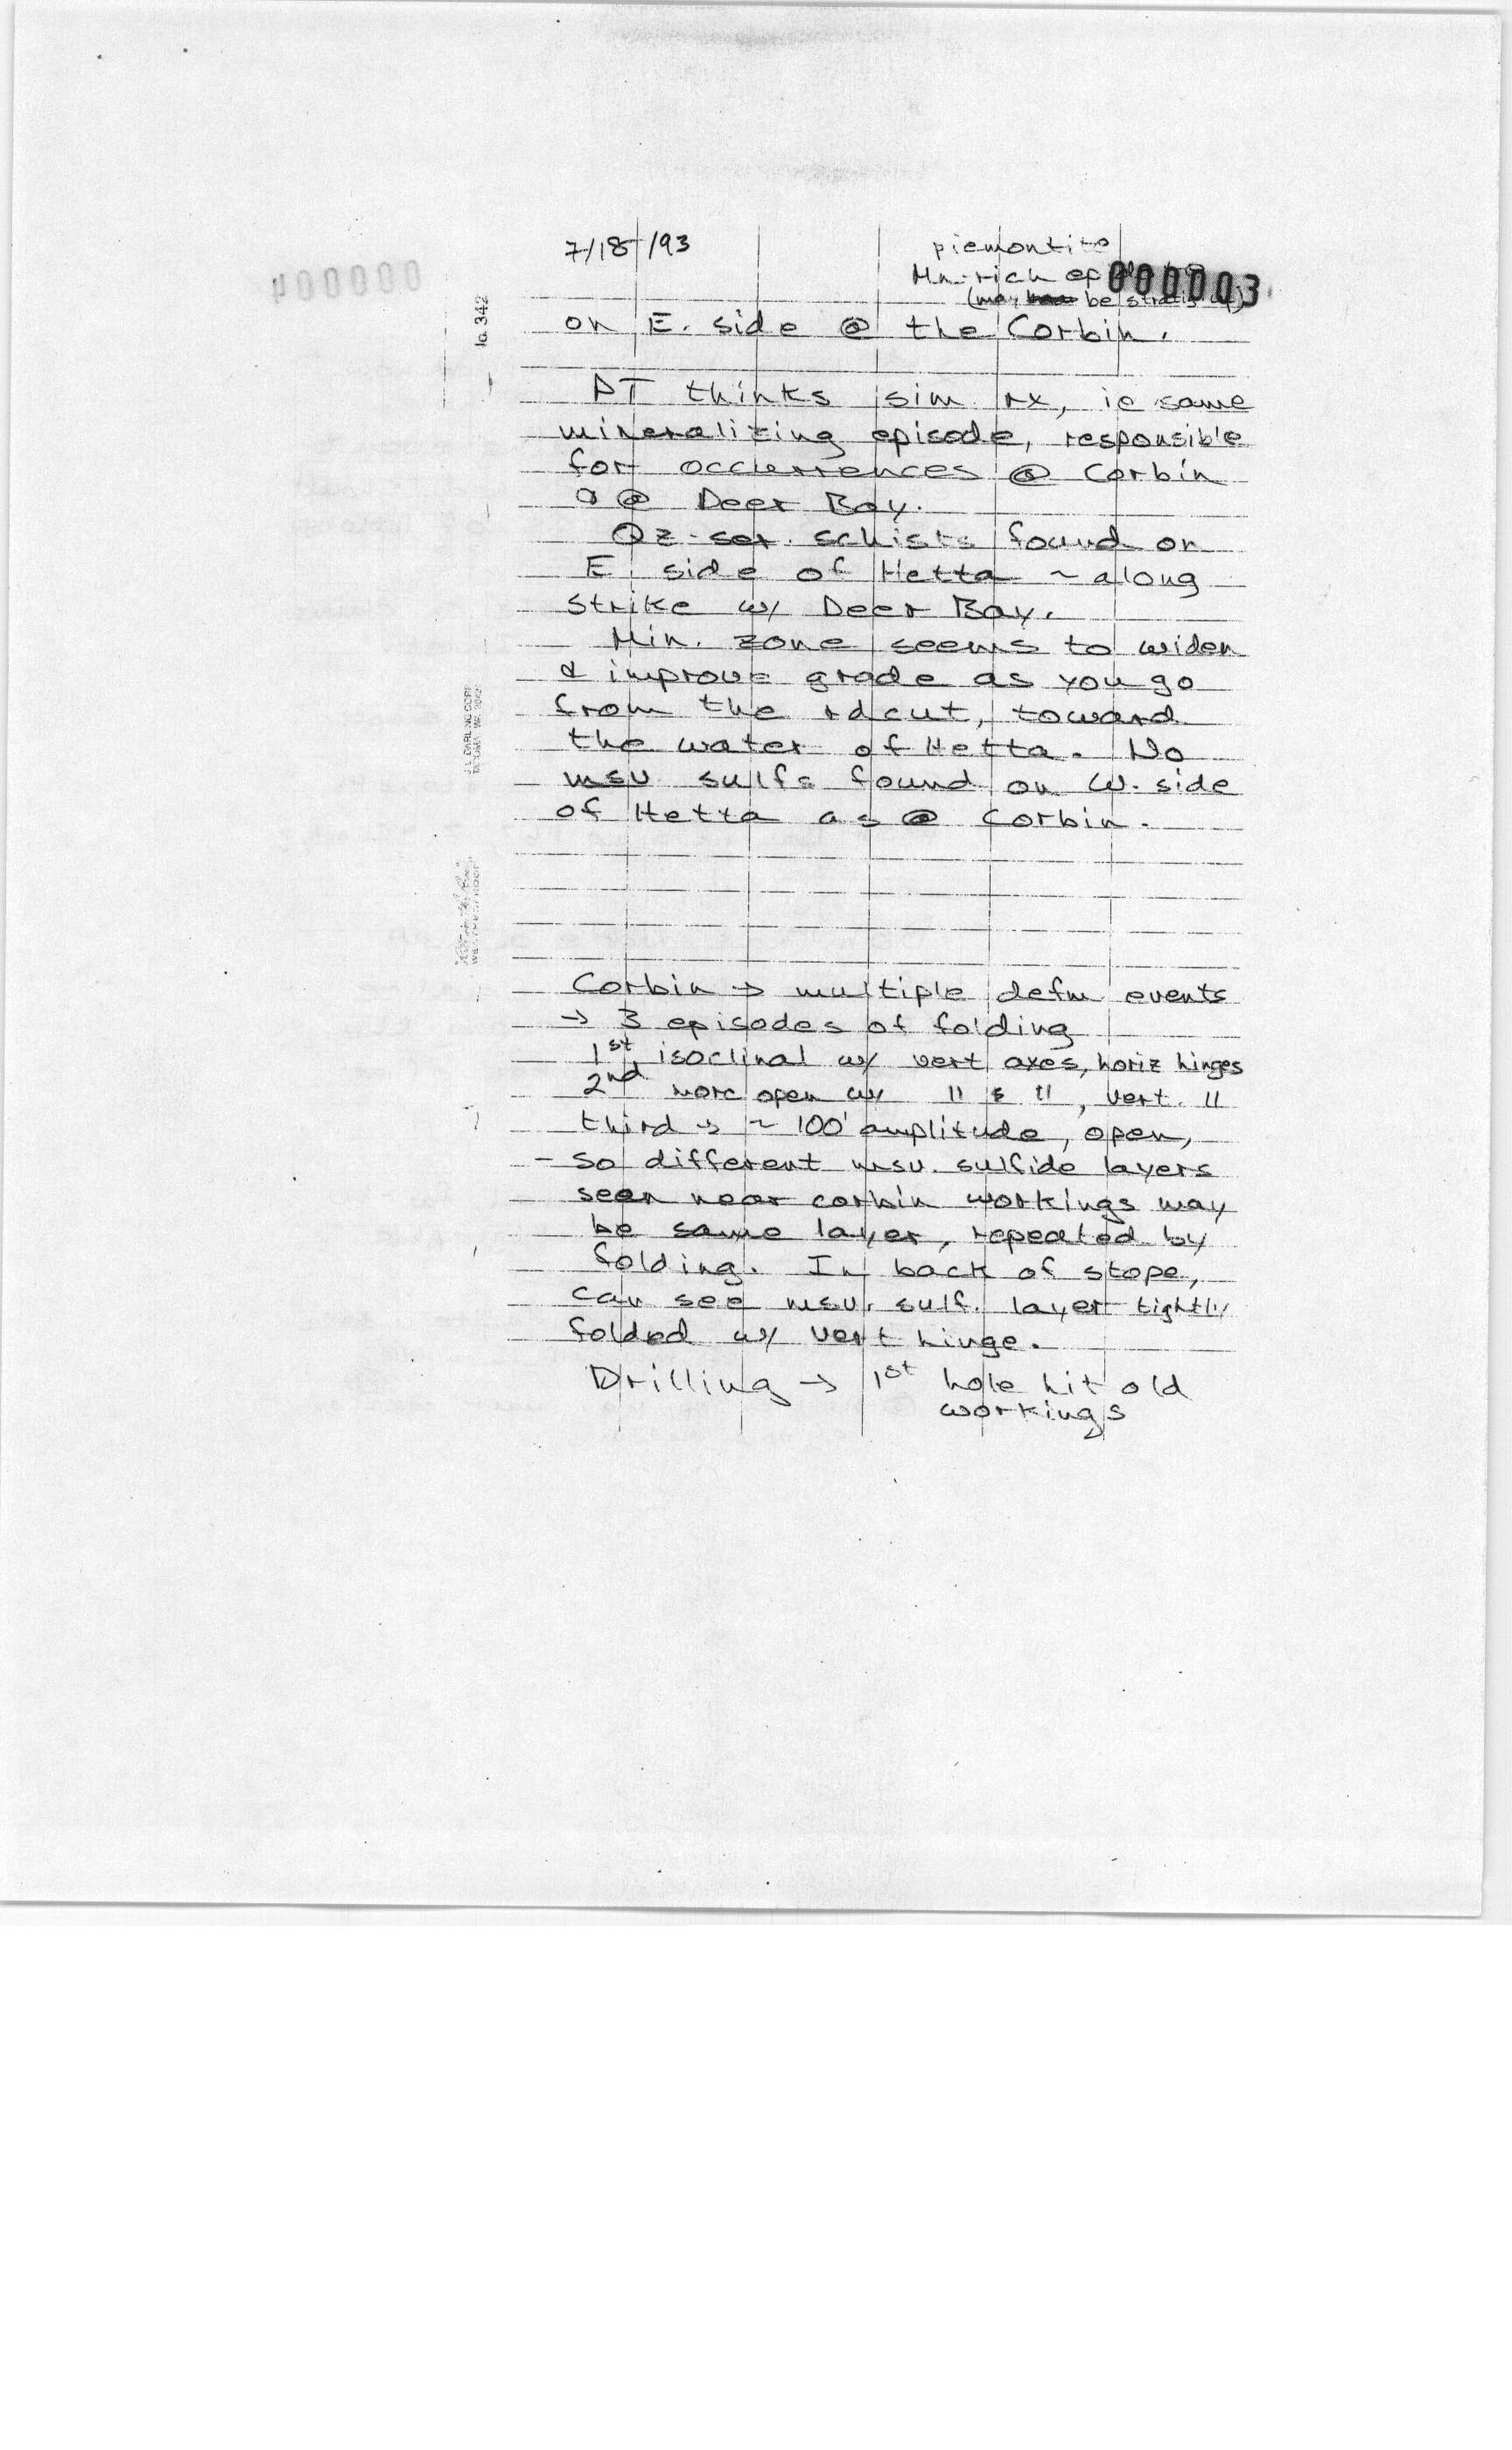 7/18/93
piemontite
Mn-rich
000003
(may be
on E. side @ the Corbin.
PT thinks sim. rx, ie same
mineralizing episode, responsible
for occurrences @ Corbin
& @ Deer Bay.
Qz-ser. schists found on
E side of Hetta ~ along
strike w/ Deer Bay.
Min. zone seems to widen
& improve grade as you go
from the rdcut, toward
the water of Hetta. No
msv sulfs found on W. side
of Hetta as @ Corbin.
Corbin → multiple defm events
→ 3 episodes of folding
1st isoclinal w/ vert axes, horiz hinges
2nd more open w/ " & ", vert. "
third → ~ 100' amplitude, open,
- so different msv. sulfide layers
seen near corbin workings may
be same layer, repeated by
folding. In back of stope,
can see msv. sulf. layer tightly
folded w/ vert hinge.
Drilling → 1st hole hit old
workings
400000
lg. 342